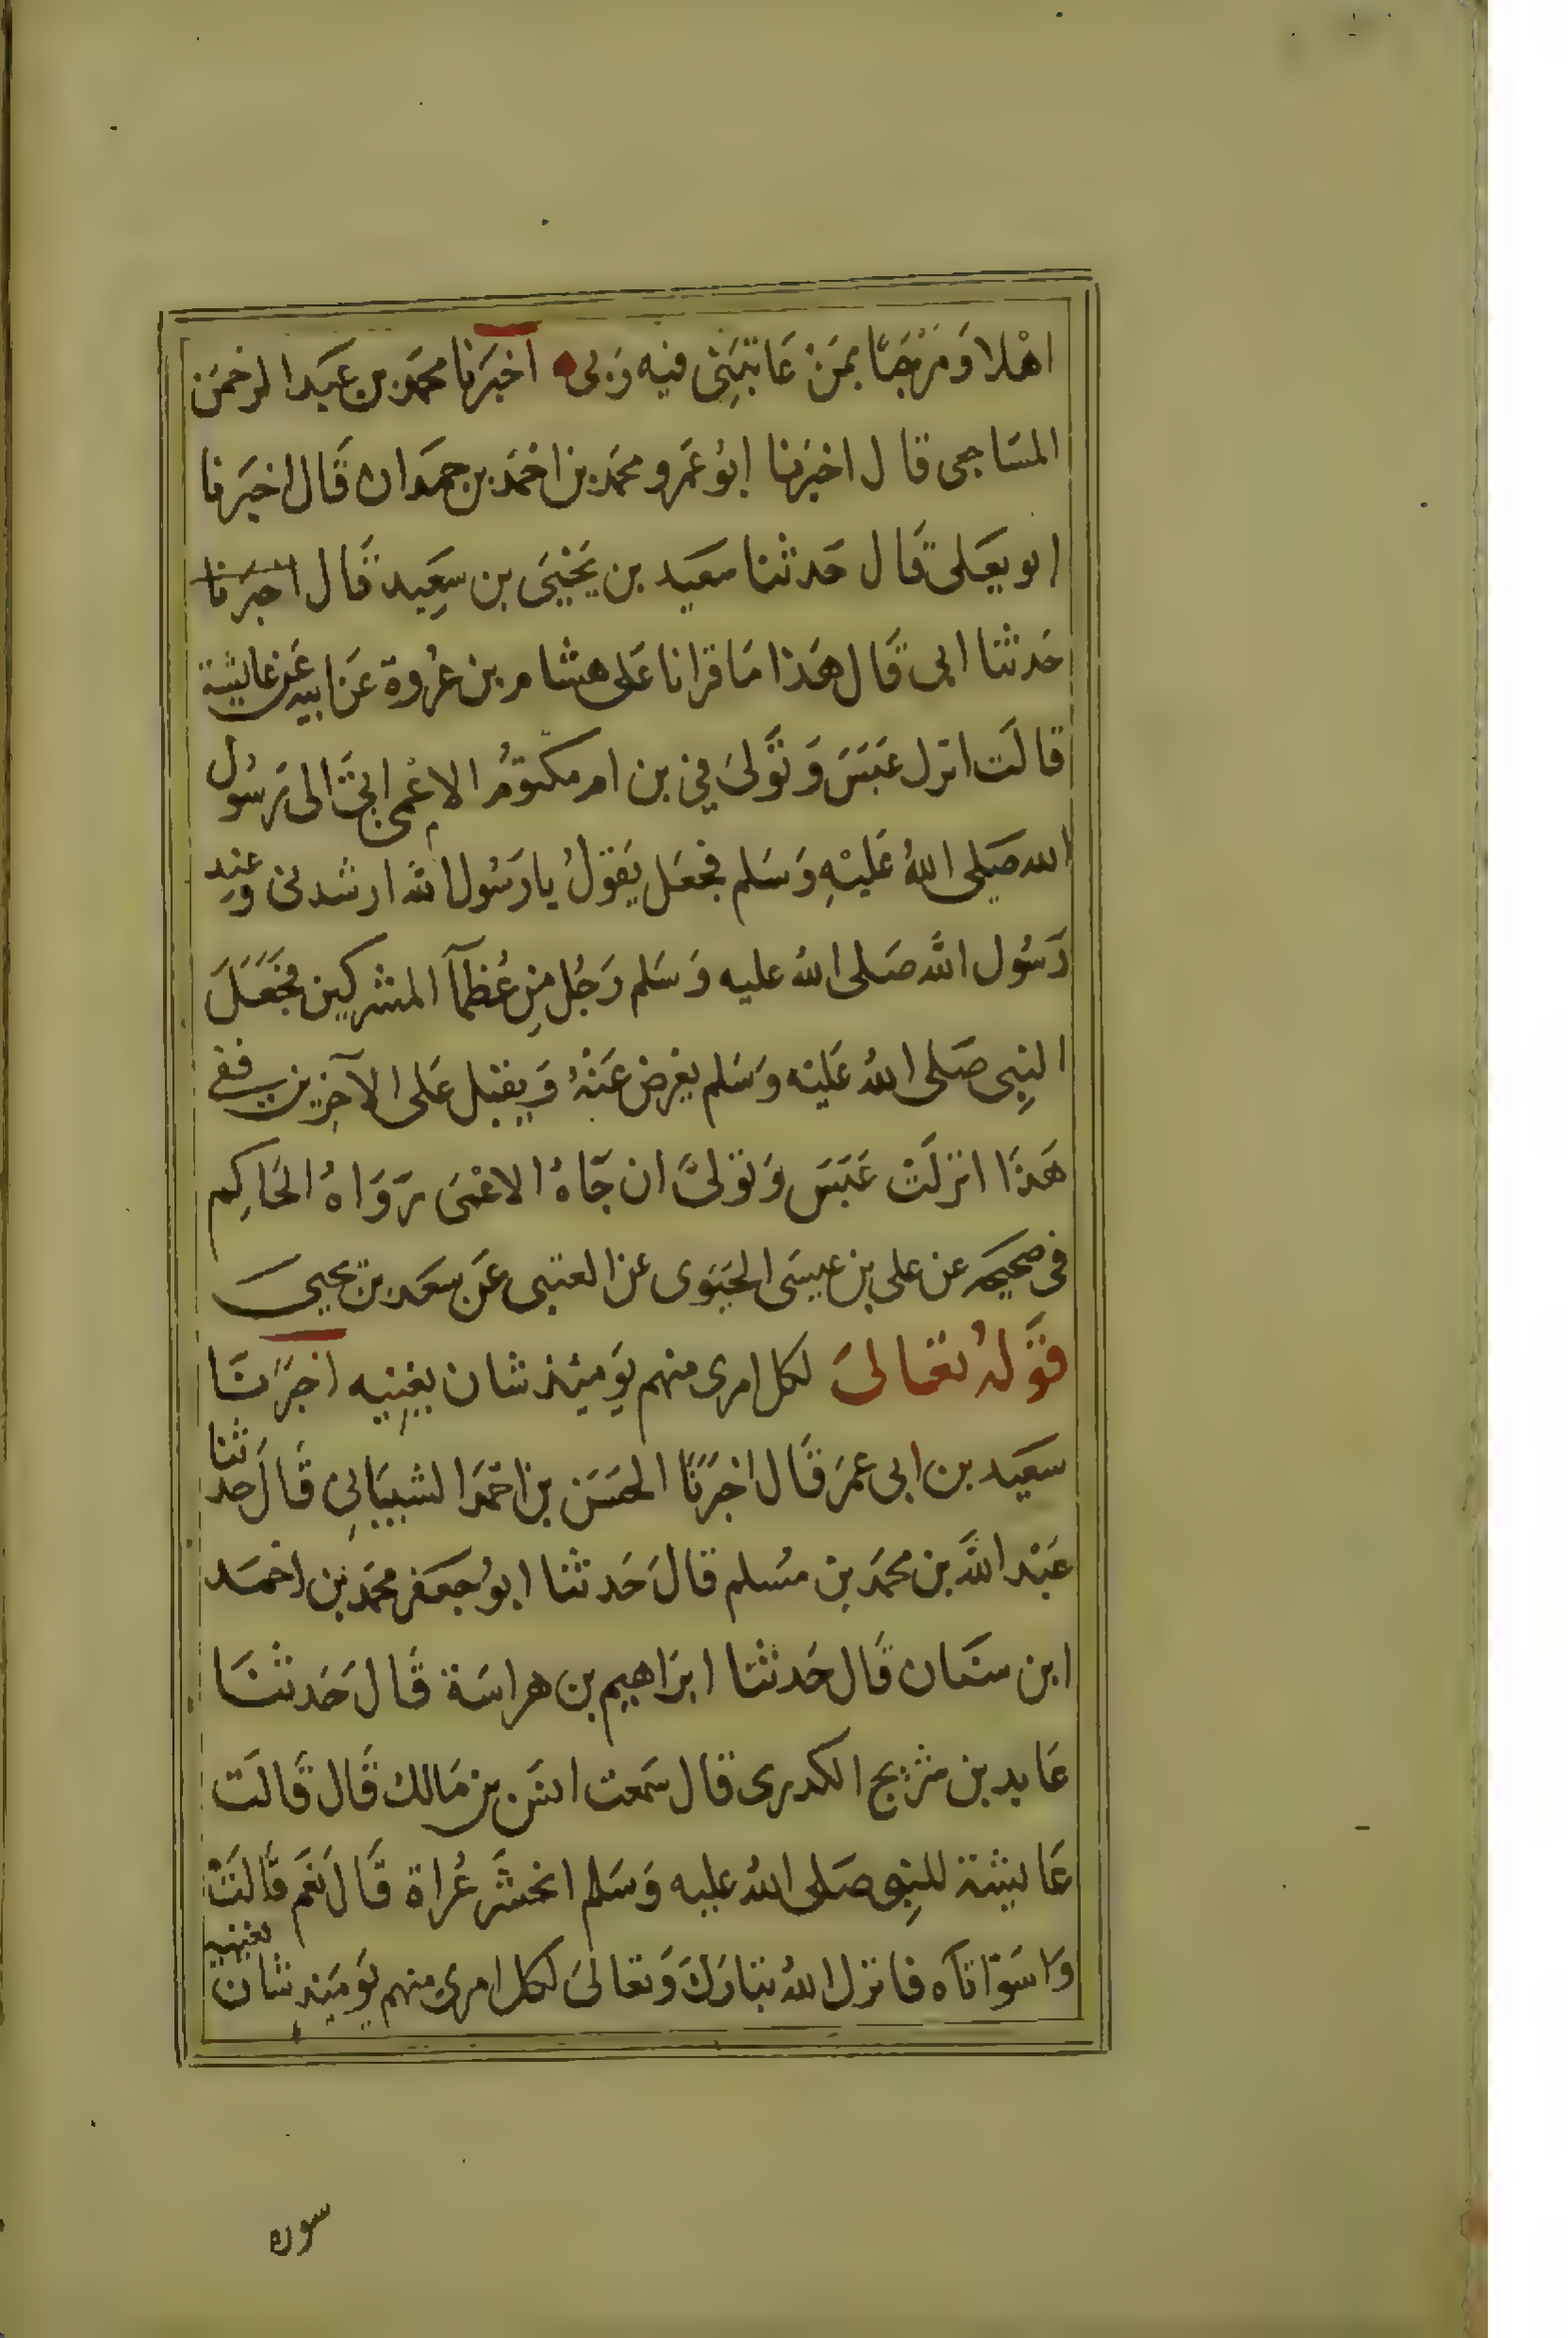 اهْلا وَمَرْحَبًا بمَنْ عَاتبَنِى فيه رَبى اخبَرَنا محمَد بن عَبَد الرحمَن
المسَاحِى قال اخبَرَنا ابُو عَمرو محمَد بن احمَد بن حمدَان قَال اخبَرنا
ابو يعَلى قَال حَدثنا سَعَيد بن يَحْيَى بن سِعَيد قَال اخبَرنا
حَدثنا ابى قَال هَذا مَا قرانا عَلى هشام بن عُروة عَن ابيه عَن عَايشة
قالَت انزل عَبَسَ وَتوَلىَ في بن ام مكتوُم الاعْمى اتىَ الى رَسُول
الله صَلى اللهُ عَليْهِ وَسَلم فجعَل يَقولُ يا رَسُول الله ارشدنى وعند
رَسُول الله صَلى اللهُ عليه وَسَلم رَجُل مِن عُظمآ المشركين فجَعَلَ
النبِى صَلى اللهُ عَليْه وَسَلم يعْرض عَنْهُ وَيقبل عَلى الآخرين ففى
هَذَا انزلَتْ عَبَسَ وَتوَلىَّ ان جَاهُ الاعْمَى رَوَاهُ الحَاكِم
فى صَحيحه عن على بن عيسَى الحيَوى عن العتبى عَن سعَد بن يحيى
قوَلهُ تعَالىَ لكل امرى منهم يوَميْذ شان يغنِيه اخبَرَنا
سعَيد بن ابى عمَر قَال اخبَرَنَا الحسَن بن احمَد الشيبَانِى قَال حدثنا
عَبْد الله بن محمَد بن مسُلم قال حَدثنا ابوُ جعَفر محمَد بن احمَد
ابن سنَان قَال حَدثنا ابرَاهيم بن هراسَة قَال حَدثنا
عَايد بن شريح الكدرى قال سَمعت انسَ بن مَالك قَال قَالَت
عَايشة للنبِى صَلى اللهُ عليه وَسَلم انحشَر عُراة قَال نَعَم قَالتْ
وَاسَوَاتاَه فانزل اللهُ تبَارَكَ وَتعالىَ لكل امرى منهم يوَميَذ شان يغنيه
سوره